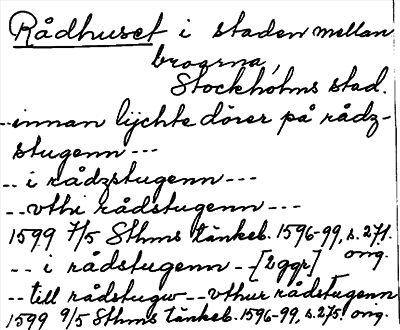 Rådhuset i staden mellan
broarna,
Stockholms stad.
--innan lijchte dörer på rådz-
stugenn ---
-- i rådzstugenn ---
-- vthi rådstugenn ---
1599 7/5 Sthms tänkeb. 1596-99, s. 271.
-- i rådstugenn --[2 ggr] ong.
-- till rådstugw -- vthur rådstugenn
1599 9/5 Sthms tänkeb. 1596-99, s. 275 ong.